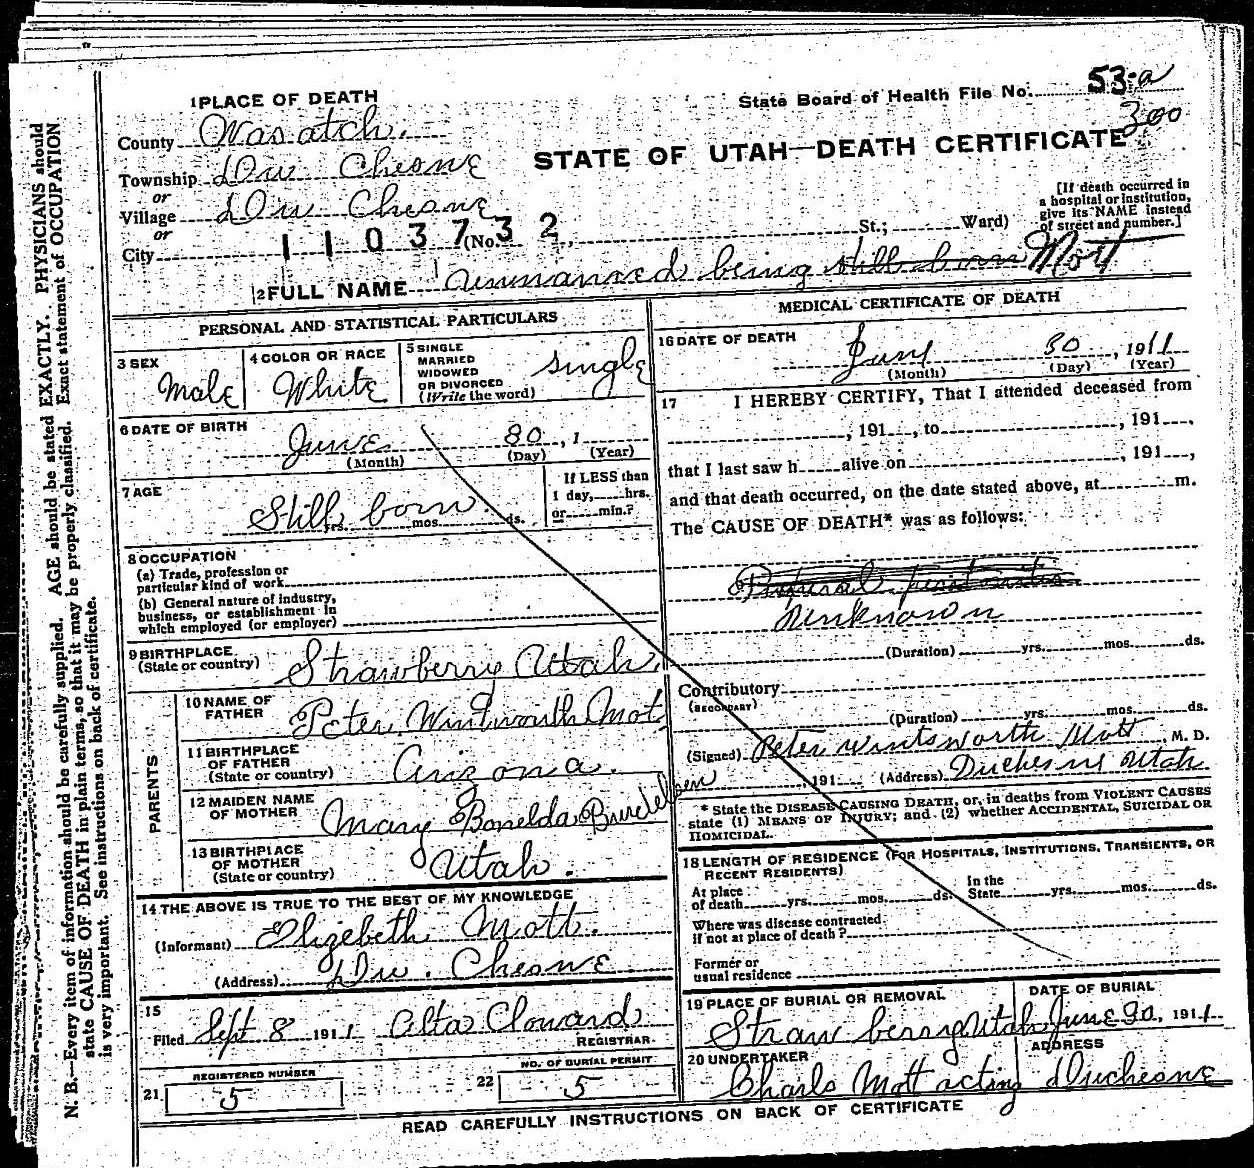 State Board of Health File No. 53-a
300
1 PLACE OF DEATH
County Wasatch.
STATE OF UTAH—DEATH CERTIFICATE
Township Du Chesne
or
Village Du Chesne
or
City
1 1 0 3 7 3 2
(No. St.; Ward)
[If death occurred in
a hospital or institution,
give its NAME instead
of street and number.]
2 FULL NAME Unnamed being still born Mott
PERSONAL AND STATISTICAL PARTICULARS
3 SEX
Male
4 COLOR OR RACE
White
5 SINGLE
MARRIED
WIDOWED
OR DIVORCED
(Write the word)
single
6 DATE OF BIRTH
June 30, 1
(Month) (Day) (Year)
7 AGE
Still born
yrs. mos. ds.
If LESS than
1 day, hrs.
or min.?
8 OCCUPATION
(a) Trade, profession or
particular kind of work
(b) General nature of industry,
business, or establishment in
which employed (or employer)
9 BIRTHPLACE
(State or country) Strawberry Utah.
PARENTS
10 NAME OF
FATHER Peter Wintworth Mot
11 BIRTHPLACE
OF FATHER
(State or country) Arizona.
12 MAIDEN NAME
OF MOTHER Mary
13 BIRTHPLACE
OF MOTHER
(State or country) Utah.
14 THE ABOVE IS TRUE TO THE BEST OF MY KNOWLEDGE
(Informant) Elizebeth Mott.
(Address) Du. Chesne
15
Filed Sept 8 1911 Alta Cloward
REGISTRAR
REGISTERED NUMBER
21 5
NO. OF BURIAL PERMIT
22 5
MEDICAL CERTIFICATE OF DEATH
16 DATE OF DEATH
June 30, 1911
(Month) (Day) (Year)
17 I HEREBY CERTIFY, That I attended deceased from
, 191 , to , 191 ,
that I last saw h alive on , 191 ,
and that death occurred, on the date stated above, at m.
The CAUSE OF DEATH* was as follows:
Unknown
(Duration) yrs. mos. ds.
Contributory
(SECONDARY)
(Duration) yrs. mos. ds.
(Signed) Peter wintsworth Mott, M. D.
, 191 (Address) Duchesne Utah
* State the DISEASE CAUSING DEATH, or, in deaths from VIOLENT CAUSES
state (1) MEANS OF INJURY; and (2) whether ACCIDENTAL, SUICIDAL OR
HOMICIDAL.
18 LENGTH OF RESIDENCE (FOR HOSPITALS, INSTITUTIONS, TRANSIENTS, OR
RECENT RESIDENTS)
At place
of death yrs. mos. ds.
In the
State yrs. mos. ds.
Where was disease contracted
if not at place of death?
Former or
usual residence
19 PLACE OF BURIAL OR REMOVAL
Straw berry Utah
DATE OF BURIAL
June 30, 1911
20 UNDERTAKER
Charls Mott acting
ADDRESS
Duchesne
READ CAREFULLY INSTRUCTIONS ON BACK OF CERTIFICATE
N. B.—Every item of information should be carefully supplied. AGE should be stated EXACTLY. PHYSICIANS should
state CAUSE OF DEATH in plain terms, so that it may be properly classified. Exact statement of OCCUPATION
is very important. See instructions on back of certificate.